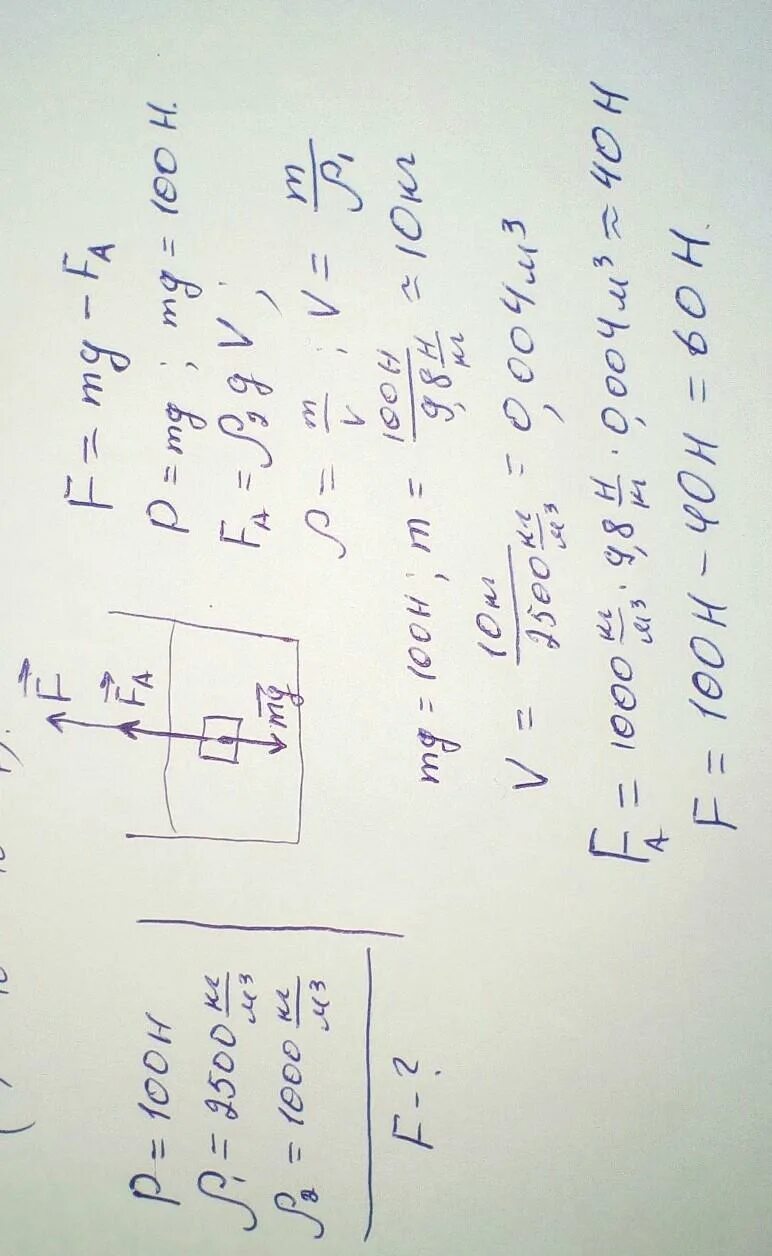 P = 100 Н
ρ₁ = 2500 кг/м³
ρ₂ = 1000 кг/м³
F - ?
F
F_A
mg
F = mg - F_A
P = mg ; mg = 100 Н.
F_A = ρ₂ g V ;
ρ = m/V ; V = m/ρ₁
mg = 100 Н ; m = 100 Н / 9,8 Н/кг ≈ 10 кг
V = 10 кг / 2500 кг/м³ = 0,004 м³
F_A = 1000 кг/м³ · 9,8 Н/кг · 0,004 м³ ≈ 40 Н
F = 100 Н - 40 Н = 60 Н.